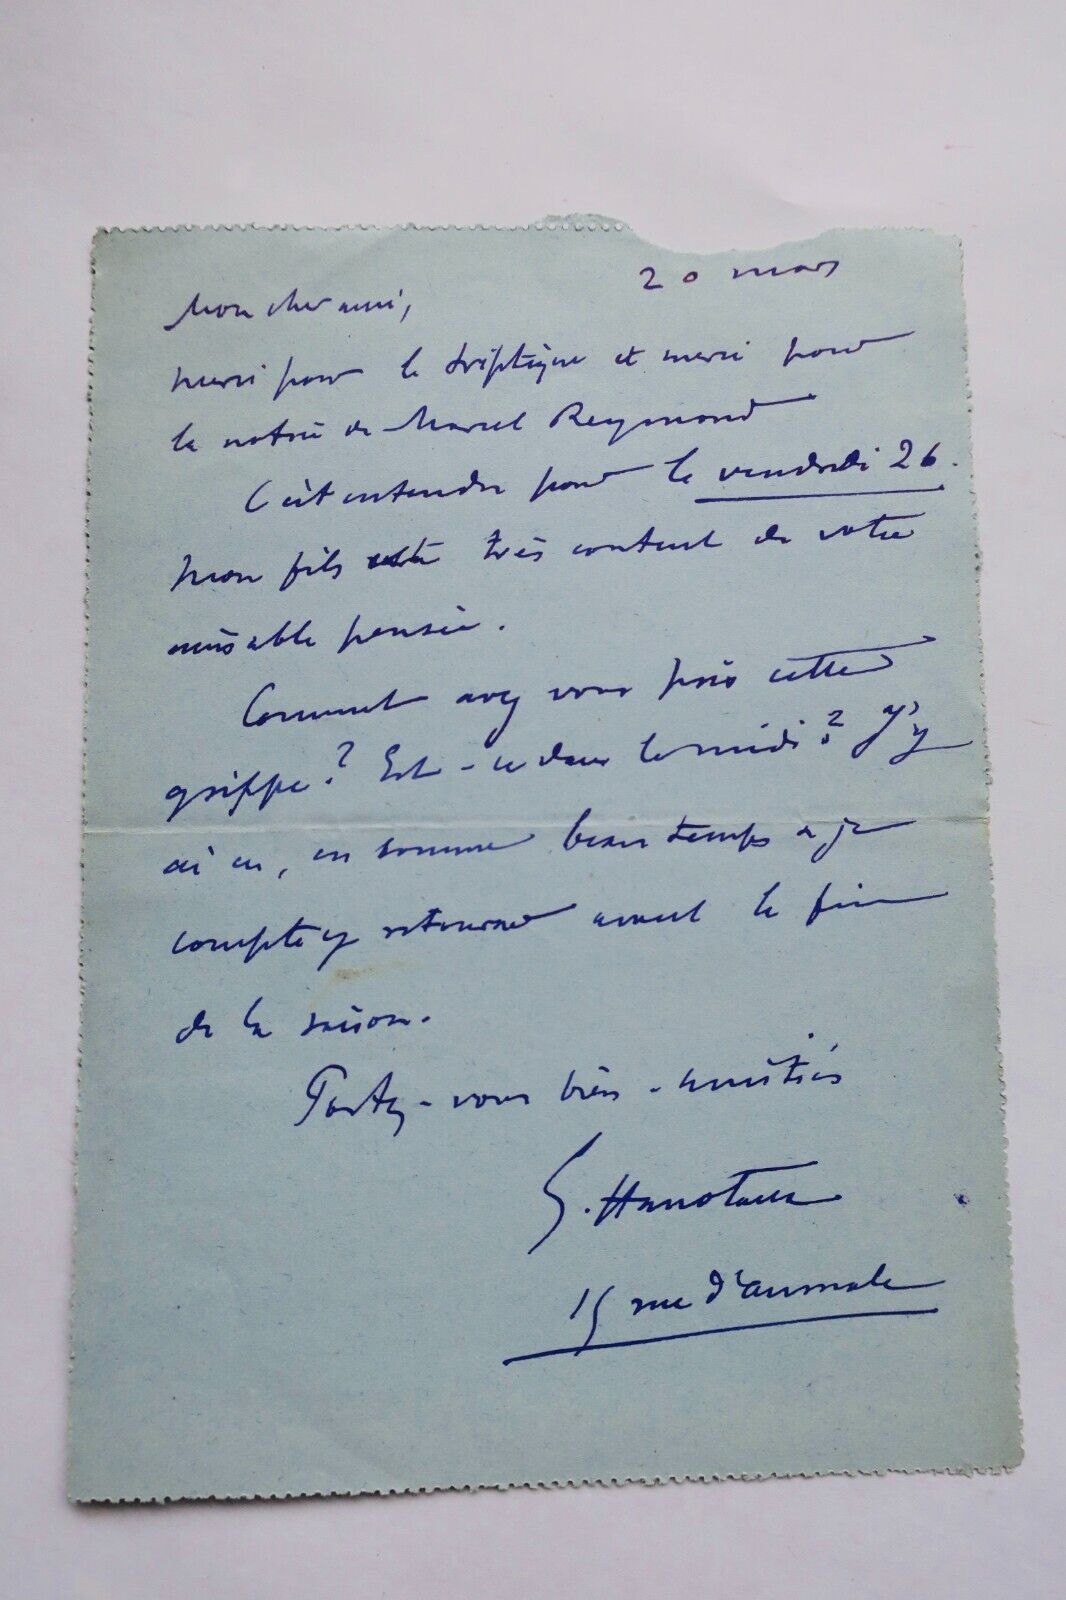 20 mars
Mon cher ami,
Merci pour le triptique et merci pour
la notice de Marcel Reymond
C'est entendu pour le vendredi 26.
Mon fils est très content de votre
aimable pensée.
Comment avez vous pris cette
grippe? Est-ce dans le midi? J'y
ai eu, en somme beau temps et je
compte y retourner avant la fin
de la saison.
Portez-vous bien - amitiés
G. Hanotaux
15 rue d'aumale